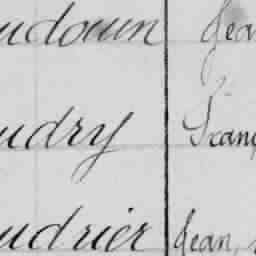 udouin Jea
udry Franç
udrier Jean,